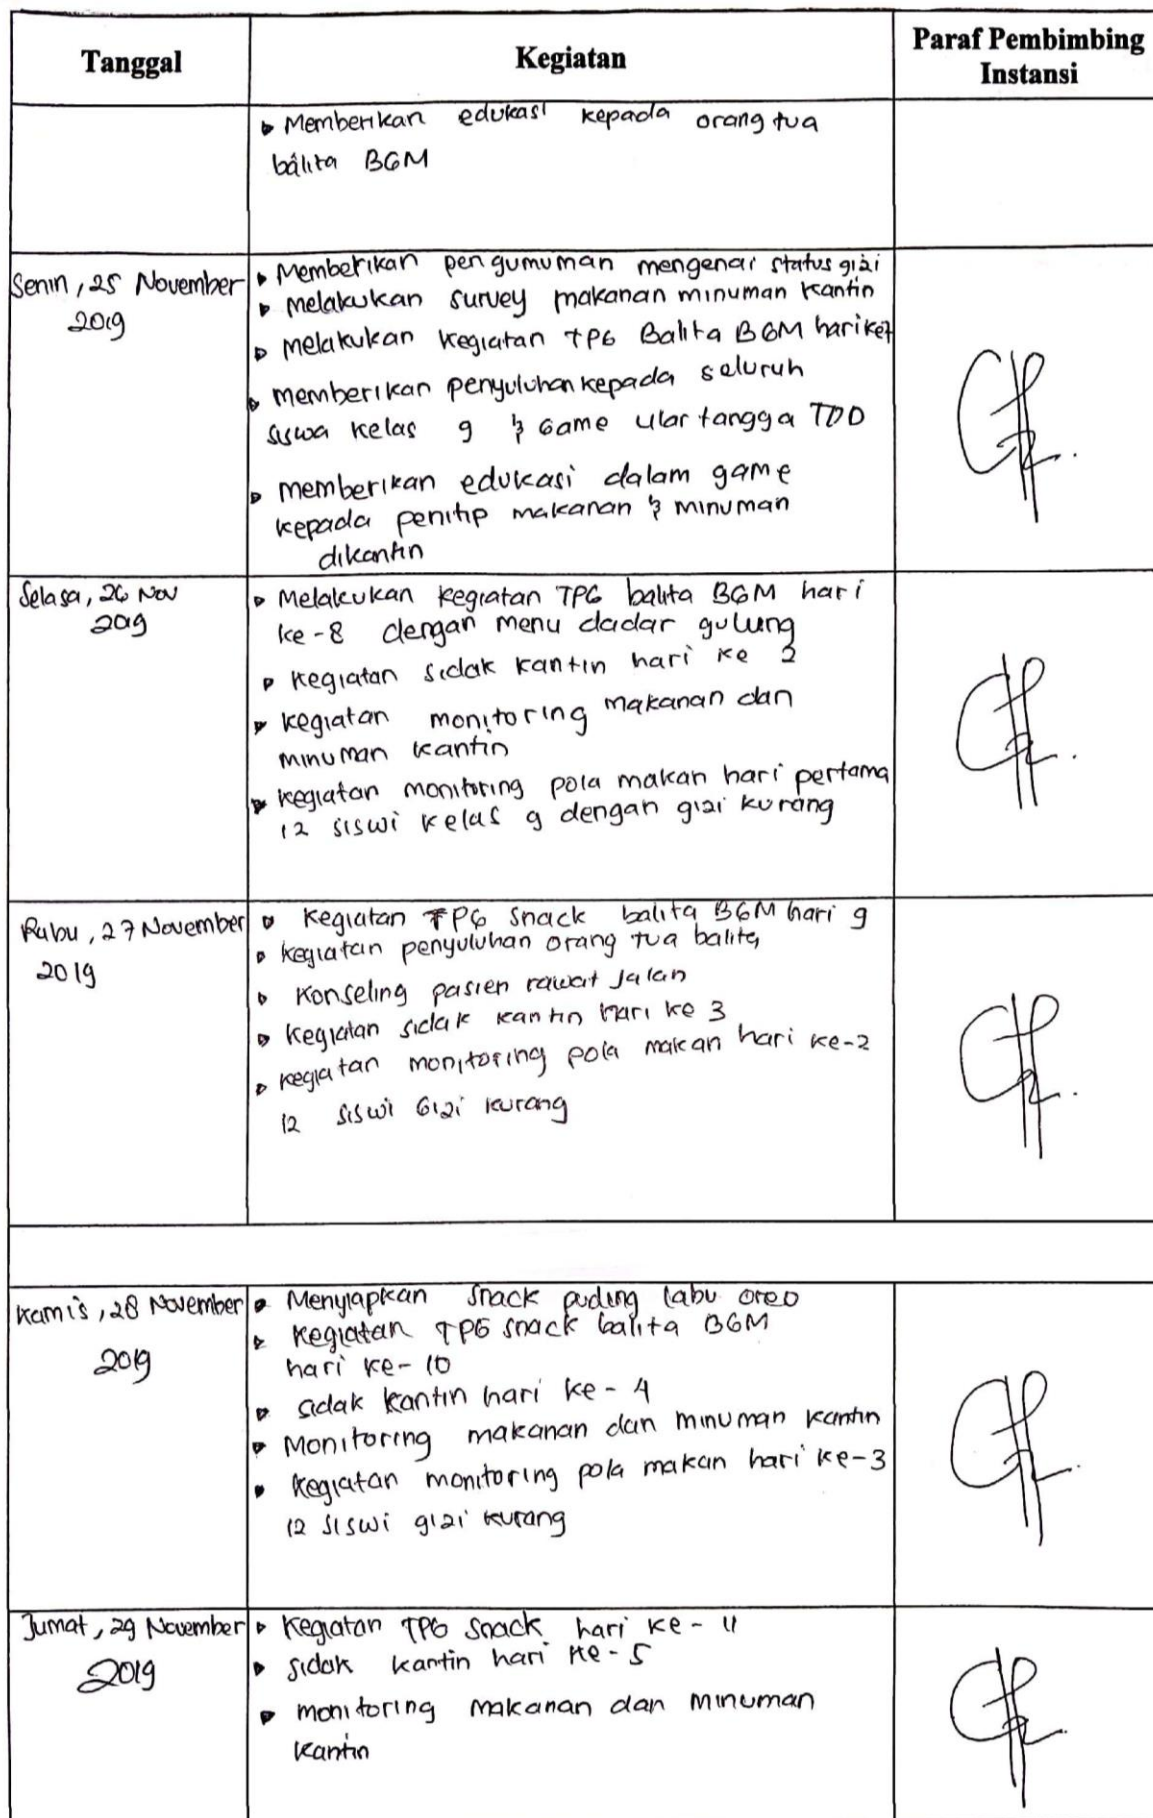 Tanggal
Kegiatan
Paraf Pembimbing
Instansi
Memberikan edukasi kepada orang tua
balita BGM
Senin, 25 November
2019
Memberikan pengumuman mengenai status gizi
melakukan survey makanan minuman kantin
melakukan kegiatan TPG Balita BGM hari ke7
memberikan penyuluhan kepada seluruh
siswa kelas 9 & Game ular tangga TDD
memberikan edukasi dalam game
kepada penitip makanan & minuman
dikantin
Selasa, 26 Nov
2019
Melakukan kegiatan TPG balita BGM hari
ke-8 dengan menu dadar gulung
kegiatan sidak kantin hari ke 2
kegiatan monitoring makanan dan
minuman kantin
kegiatan monitoring pola makan hari pertama
12 siswi kelas 9 dengan gizi kurang
Rabu, 27 November
2019
Kegiatan TPG snack balita BGM hari 9
kegiatan penyuluhan orang tua balita
Konseling pasien rawat jalan
kegiatan sidak kantin hari ke 3
kegiatan monitoring pola makan hari ke-2
12 siswi Gizi kurang
Kamis, 28 November
2019
Menyiapkan snack puding labu oreo
kegiatan TPG snack balita BGM
hari ke-10
sidak kantin hari ke-4
Monitoring makanan dan minuman kantin
kegiatan monitoring pola makan hari ke-3
12 siswi gizi kurang
Jumat, 29 November
2019
Kegiatan TPG snack hari ke-11
sidak kantin hari ke-5
monitoring makanan dan minuman
kantin